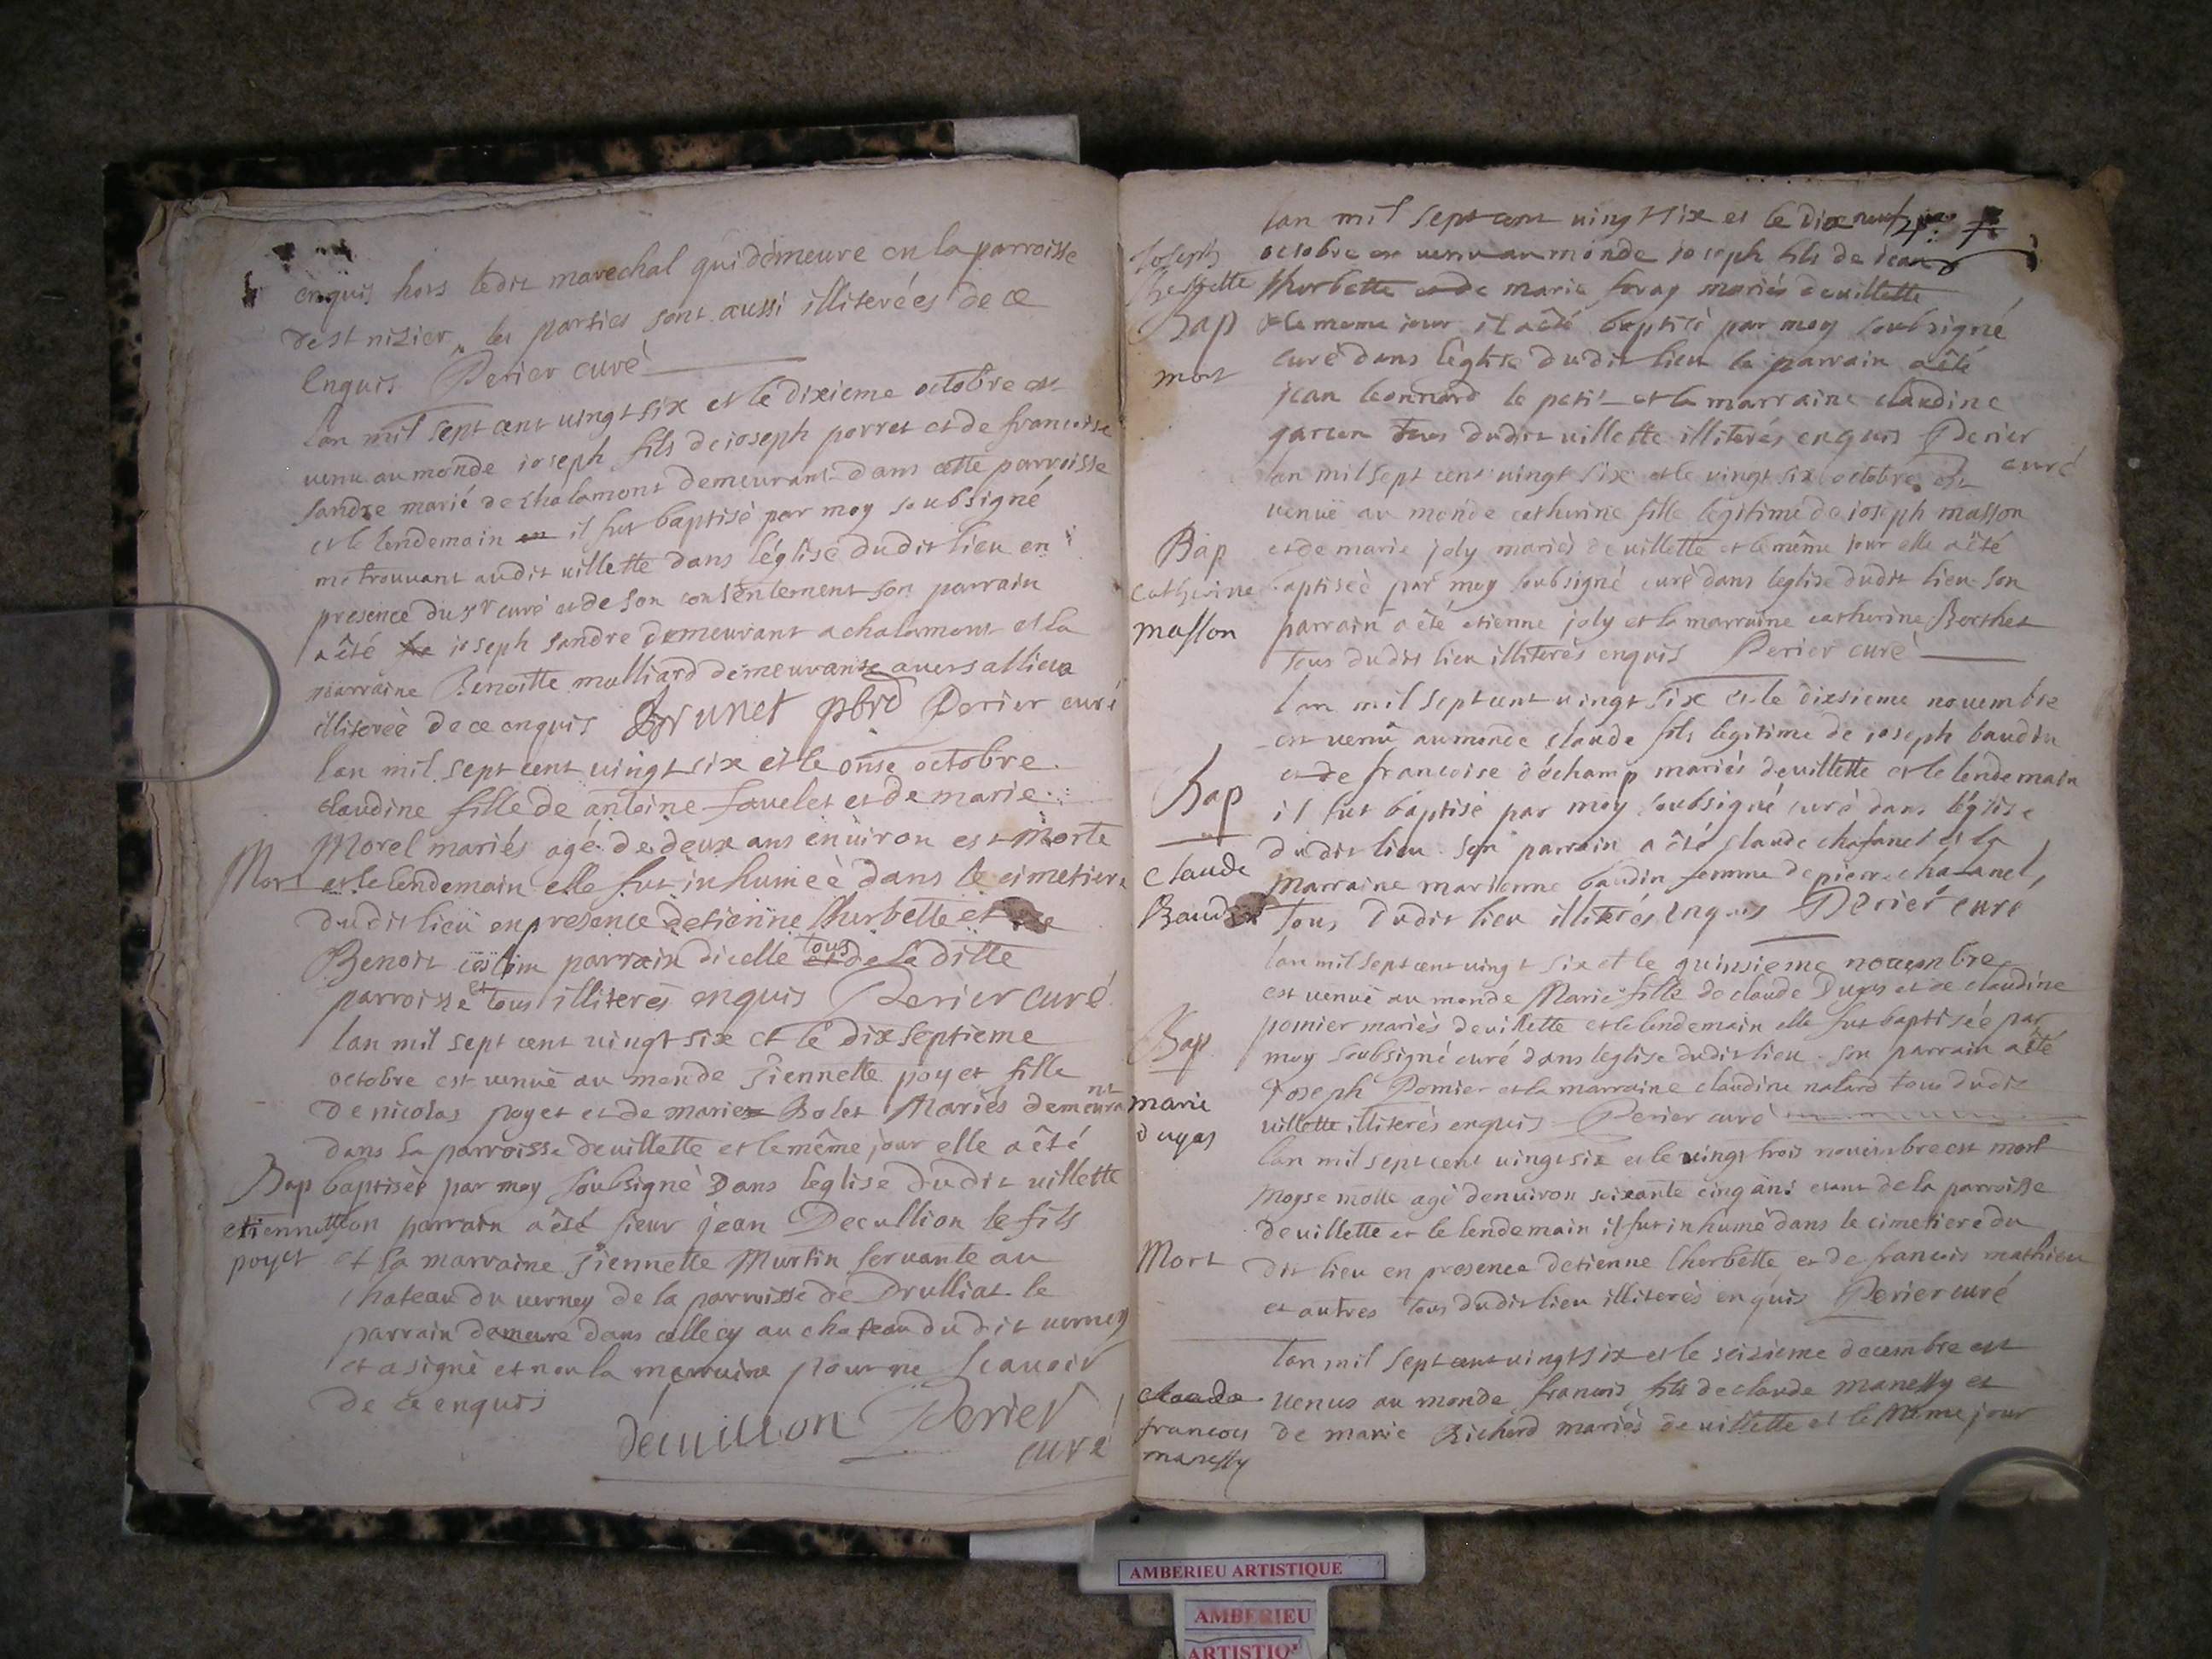 enquis hors ledit marechal qui demeure en la parroisse
de st nisier les parties sont aussi illiterées de ce
Enquis Perier curé
lan mil sept cent vingt six et le dixieme octobre est
venu au monde ioseph fils de ioseph perret et de francoise
sandre marié de chalamont demeurant dans cette parroisse
et le lendemain il fut baptisé par moy soubsigné
me trouvant audit villette dans léglise dudit lieu en
presence du sr curé et de son consentement son parrain
a êté ioseph sandre demeurant a chalamont et la
marraine Benoitte mulliard demeurante a versallieu
illiterée de ce enquis Brunet pbre Perier curé
lan mil sept cent vingt six et le onse octobre
claudine fille de antoine favelet et de marie
Morel mariés agé de deux ans enuiron est Morte
Mort et le lendemain elle fut inhumeé dans le cimetiere
dudit lieu en presence detienne lhurbette et
Benoit parrain dicelle tous de la ditte
parroisse et tous illiterés enquis Perier curé
lan mil sept cent vingt six et le dix septieme
octobre est venuë au monde Siennette poyet fille
de nicolas poyet et de marie Bolet Mariés demeurant
dans la parroisse de villette et le même jour elle a êté
Bap baptiseé par moy soubsigné Dans léglise dudit villette
etiennette son parrain a êté sieur jean Decullion le fils
poyet et la marraine Siennette Murtin servante au
chateau du verney de la parroisse de Drulliat le
parrain demeure dans celle cy au chateau dudit verney
et a signé et non la marraine pour ne scavoir
de ce enquis
décuillon Perier
curé
lan mil sept cent vingt six et le dix neuf
Joseph octobre est venu au monde ioseph fils de iean
lherbette lhurbette et de marie foray mariés de villette
Bap & le meme jour il a êté baptisé par moy soubsigné
mort curé dans léglise dudit lieu le parrain a êté
jean leonnard le petit et la marraine claudine
garcon tous dudit villette illiterés enquis Perier
curé
lan mil sept cent vingt six et le vingt six octobre est
venuë au monde catherine fille legitime de ioseph masson
Bap et de marie joly mariés de villette et le même jour elle a êté
catherine baptiseé par moy soubsigné curé dans léglise dudit lieu son
masson parrain a êté etienne joly et la marraine catherine Berthet
tous dudit lieu illiterés enquis Perier curé
lan mil sept cent vingt six et le dixsieme novembre
est venu au monde claude fils legitime de ioseph baudin
et de francoise déchamp mariés de villette et le lendemain
Bap il fut baptisé par moy soubsigné curé dans léglise
dudit lieu son parrain a êté claude chafanel et la
claude marraine marienne baudin femme de pierre chafanel,
Baudin tous dudit lieu illiterés enquis Perier curé
lan mil sept cent vingt six et le quinsieme novembre
est venuë au monde Marie fille de claude Dugas et de claudine
pomier mariés de villette et le lendemain elle fut baptisée par
Bap moy soubsigné curé dans léglise dudit lieu son parrain a êté
Joseph Pomier et la marraine claudine nalard tous dudit
marie villette illiterés enquis Perier curé
dugas lan mil sept cent vingt six et le vingt trois novembre est mort
moyse molle agé denuiron soixante cinq ans etant de la parroisse
de villette et le lendemain il fut inhumé dans le cimetiere du
Mort dit lieu en presence detienne lherbette et de francois mathieu
et autres tous dudit lieu illiterés enquis Perier curé
lan mil sept cent vingt six et le seizieme decembre est
claude venus au monde francois fils de claude manessy et
francois de marie Richard mariés de villette et le même jour
manessy
AMBERIEU ARTISTIQUE
AMBERIEU
ARTISTIQ